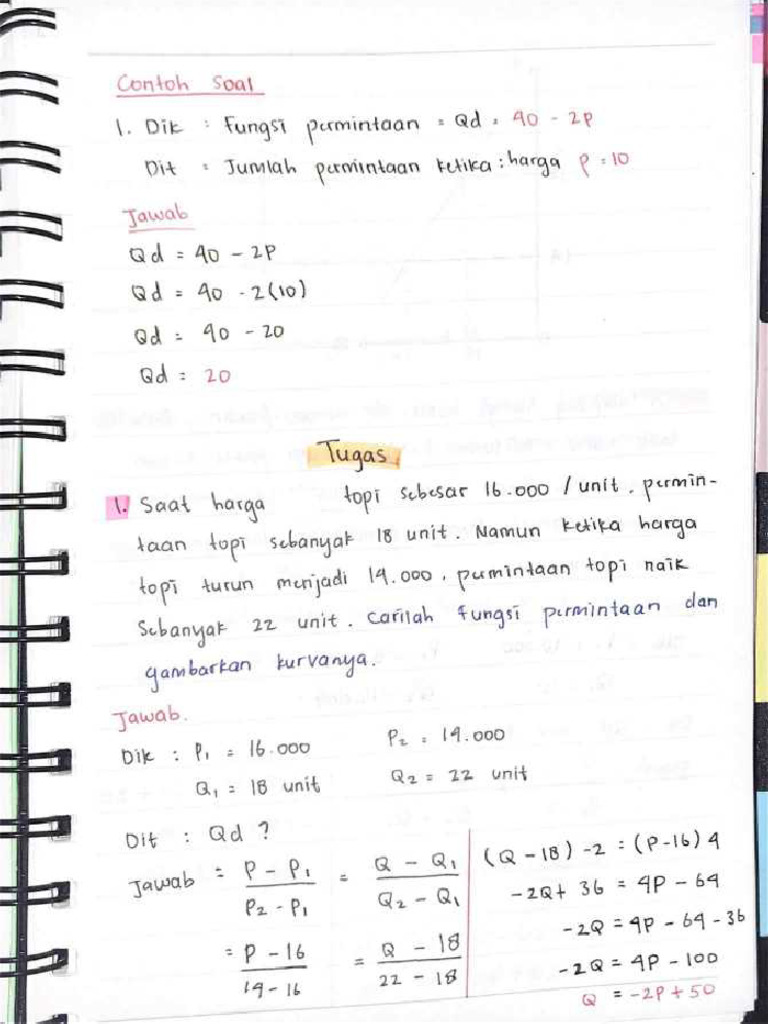 Contoh Soal
1. Dik : Fungsi permintaan = Qd = 40 - 2P
Dit = Jumlah permintaan ketika : harga P = 10
Jawab
Qd = 40 - 2P
Qd = 40 - 2(10)
Qd = 40 - 20
Qd = 20
Tugas
1. Saat harga topi sebesar 16.000 / unit. permin-
taan topi sebanyak 18 unit. Namun ketika harga
topi turun menjadi 14.000, permintaan topi naik
Sebanyak 22 unit. Carilah fungsi permintaan dan
gambarkan kurvanya.
Jawab.
Dik : P₁ = 16.000 P₂ = 14.000
Q₁ = 18 unit Q₂ = 22 unit
Dit : Qd ?
Jawab = P - P₁ / P₂ - P₁ = Q - Q₁ / Q₂ - Q₁
= P - 16 / 14 - 16 = Q - 18 / 22 - 18
(Q - 18) -2 = (P - 16) 4
-2Q + 36 = 4P - 64
-2Q = 4P - 64 - 36
-2Q = 4P - 100
Q = -2P + 50